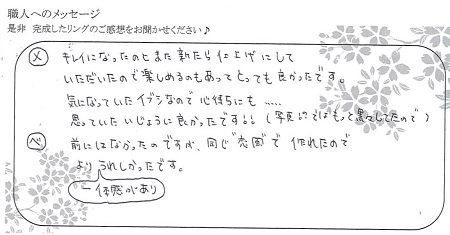 職人へのメッセージ
是非 完成したリングのご感想をお聞かせください♪
メ キレイになったのとまた新たな仕上げにして
いただいたので楽しめるのもあってとっても良かったです。
気になっていたイブシなので心待ちにも .....
思っていたいじょうに良かったです!! (写真
もって黒々してたので)
ペ 前にはなかったのですが、同じ
で作れたので
よりうれしかったです。
一体感があり